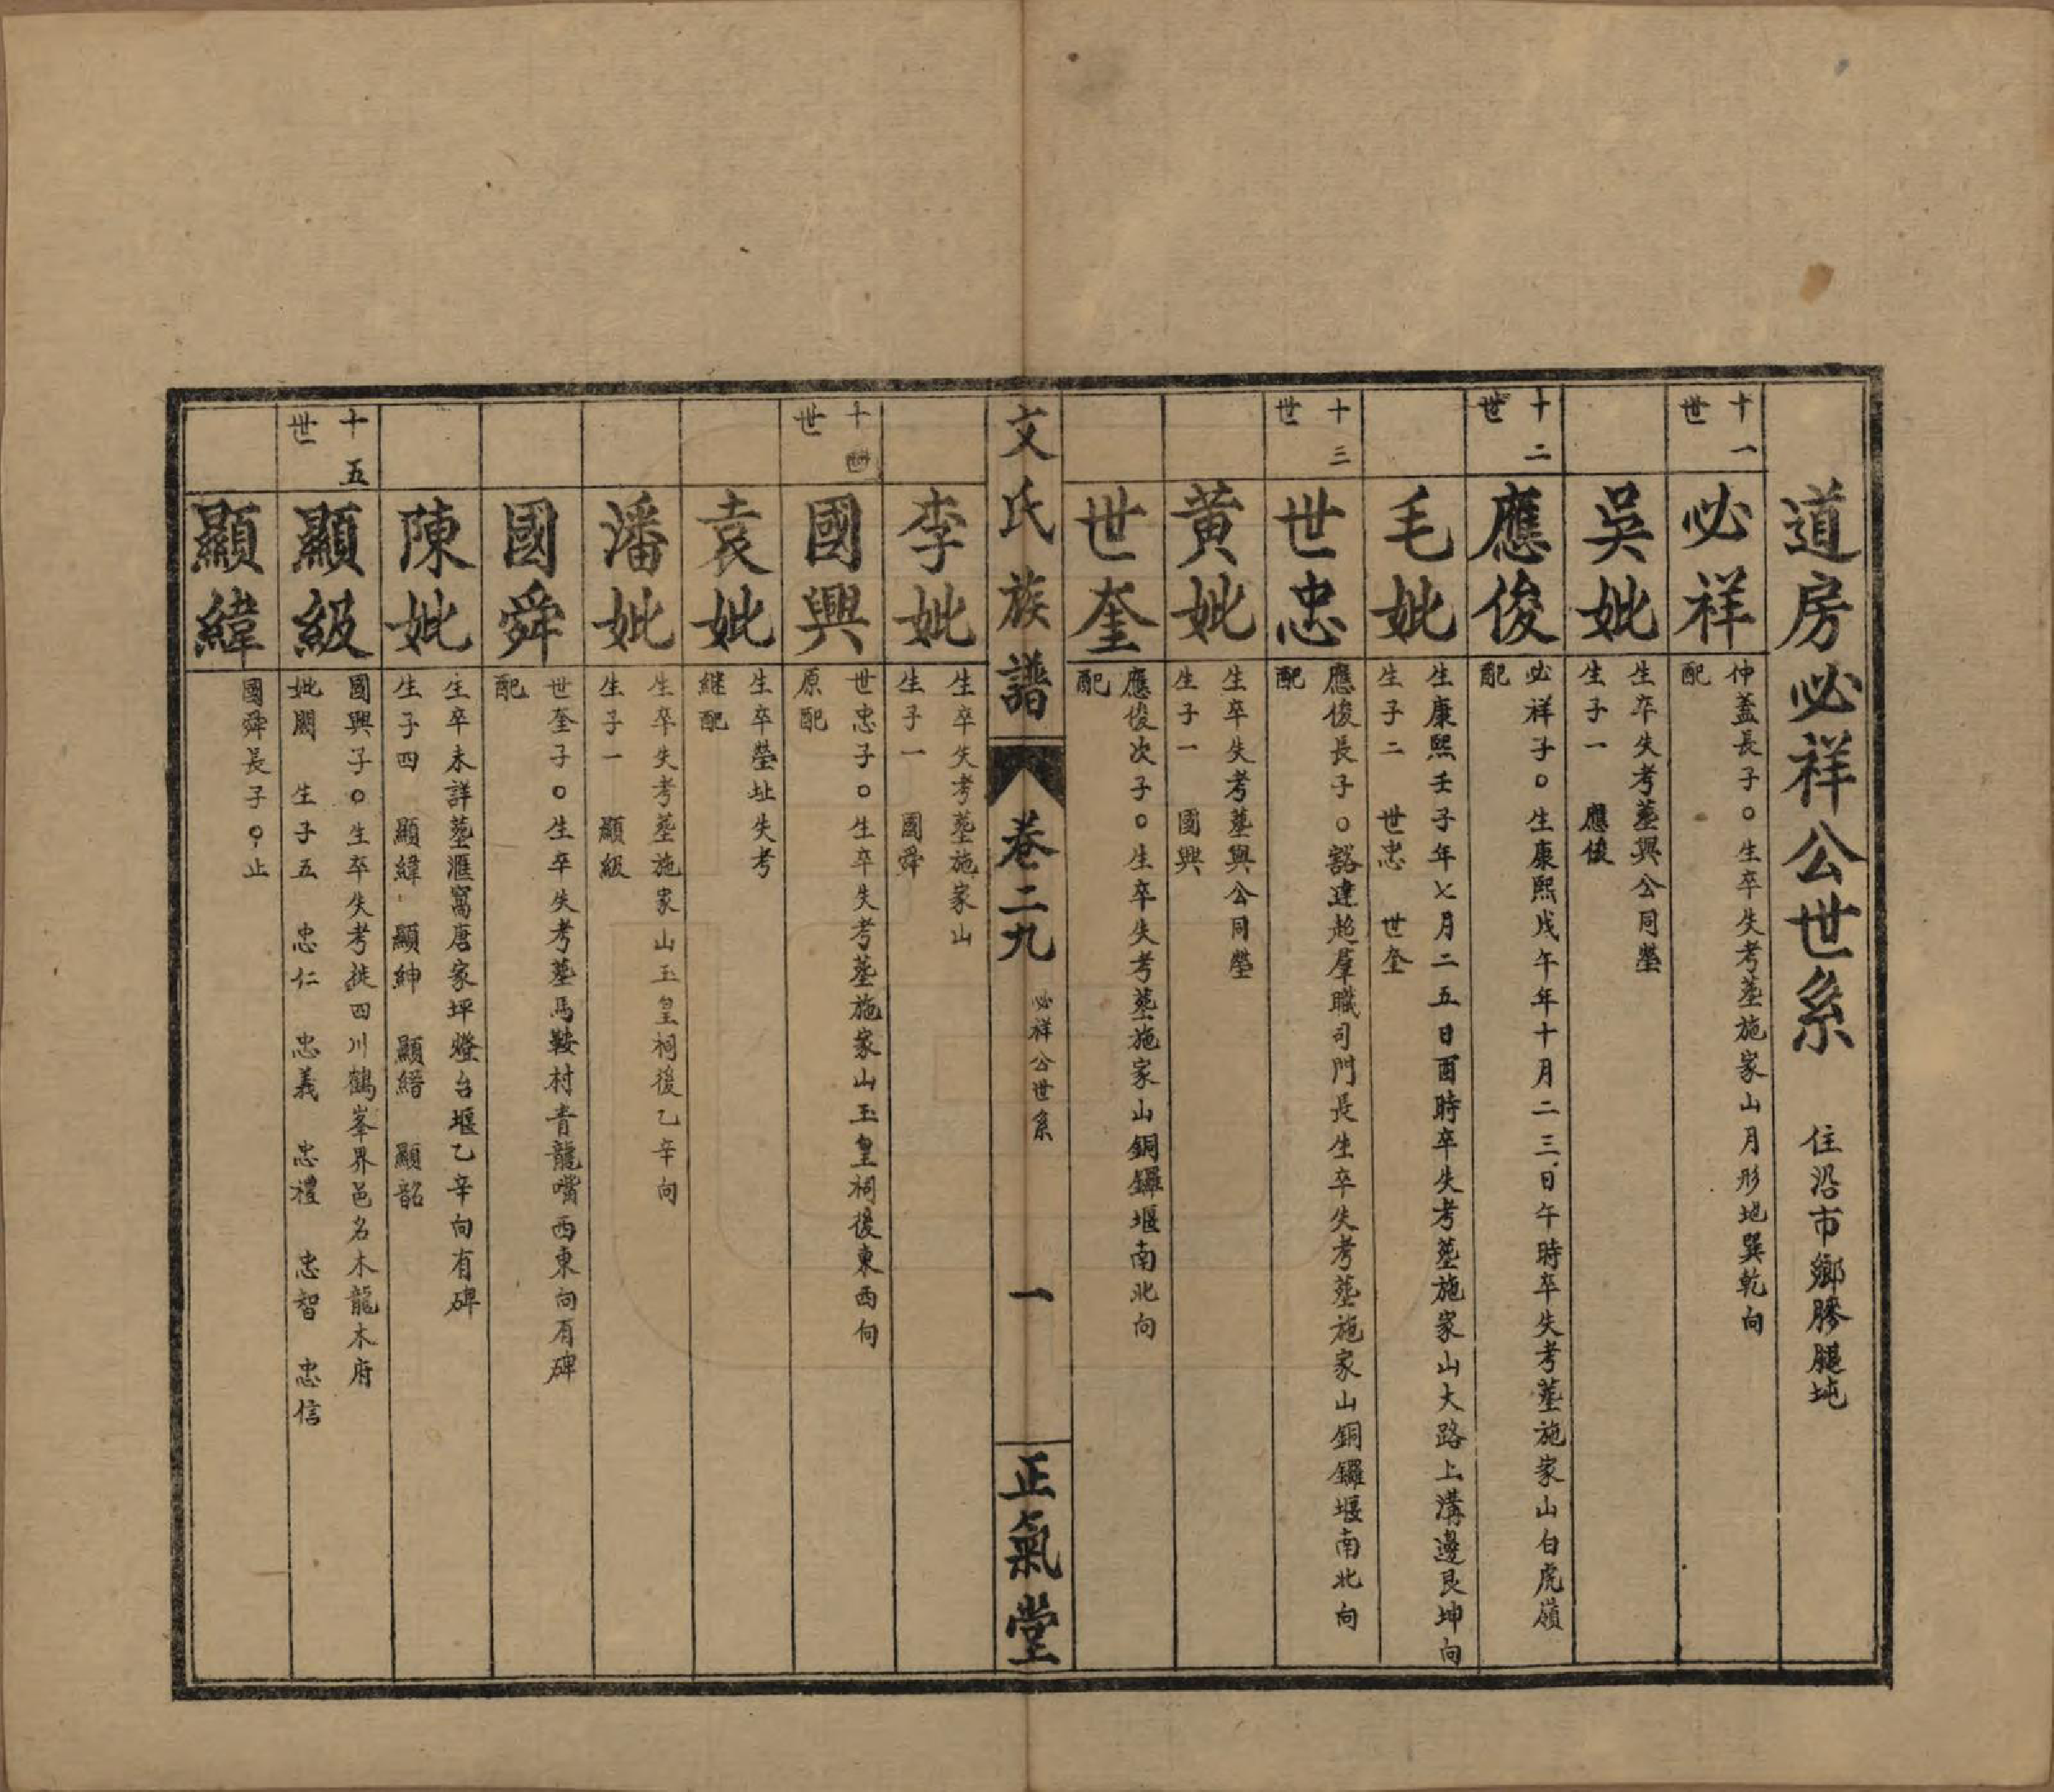 道房必祥公世系　住沿市鄉勝腿坉
十一世
必祥
仲蓋長子○生卒失考塟施家山月形地巽乾向
配
吳妣
生卒失考塟與公同塋
生子一　應俊
十二世
應俊
必祥子○生康熙戊午年十月二三日午時卒失考塟施家山白虎嶺
配
毛妣
生康熙壬子年七月二五日酉時卒失考塟施家山大路上溝邊艮坤向
生子二　世忠　世奎
十三世
世忠
應俊長子○豁達超羣職司門長生卒失考塟施家山銅鑼堰南北向
配
黄妣
生卒失考塟與公同塋
生子一　國興
世奎
應俊次子○生卒失考塟施家山銅鑼堰南北向
配
文氏族譜　卷二九　必祥公世系　一　正氣堂
李妣
生卒失考塟施家山
生子一　國舜
十四世
國興
世忠子○生卒失考塟施家山玉皇祠後東西向
原配
袁妣
生卒塋址失考
継配
潘妣
生卒失考塟施家山玉皇祠後乙辛向
生子一　顯級
國舜
世奎子○生卒失考塟馬鞍村青龍嘴西東向有碑
配
陳妣
生卒未詳塟滙窩唐家坪燈台堰乙辛向有碑
生子四　顯緯　顯紳　顯縉　顯韶
十五世
顯級
國興子○生卒失考徙四川鶴峯界邑名木龍木府
妣闕　生子五　忠仁　忠義　忠禮　忠智　忠信
顯緯
國舜長子○止